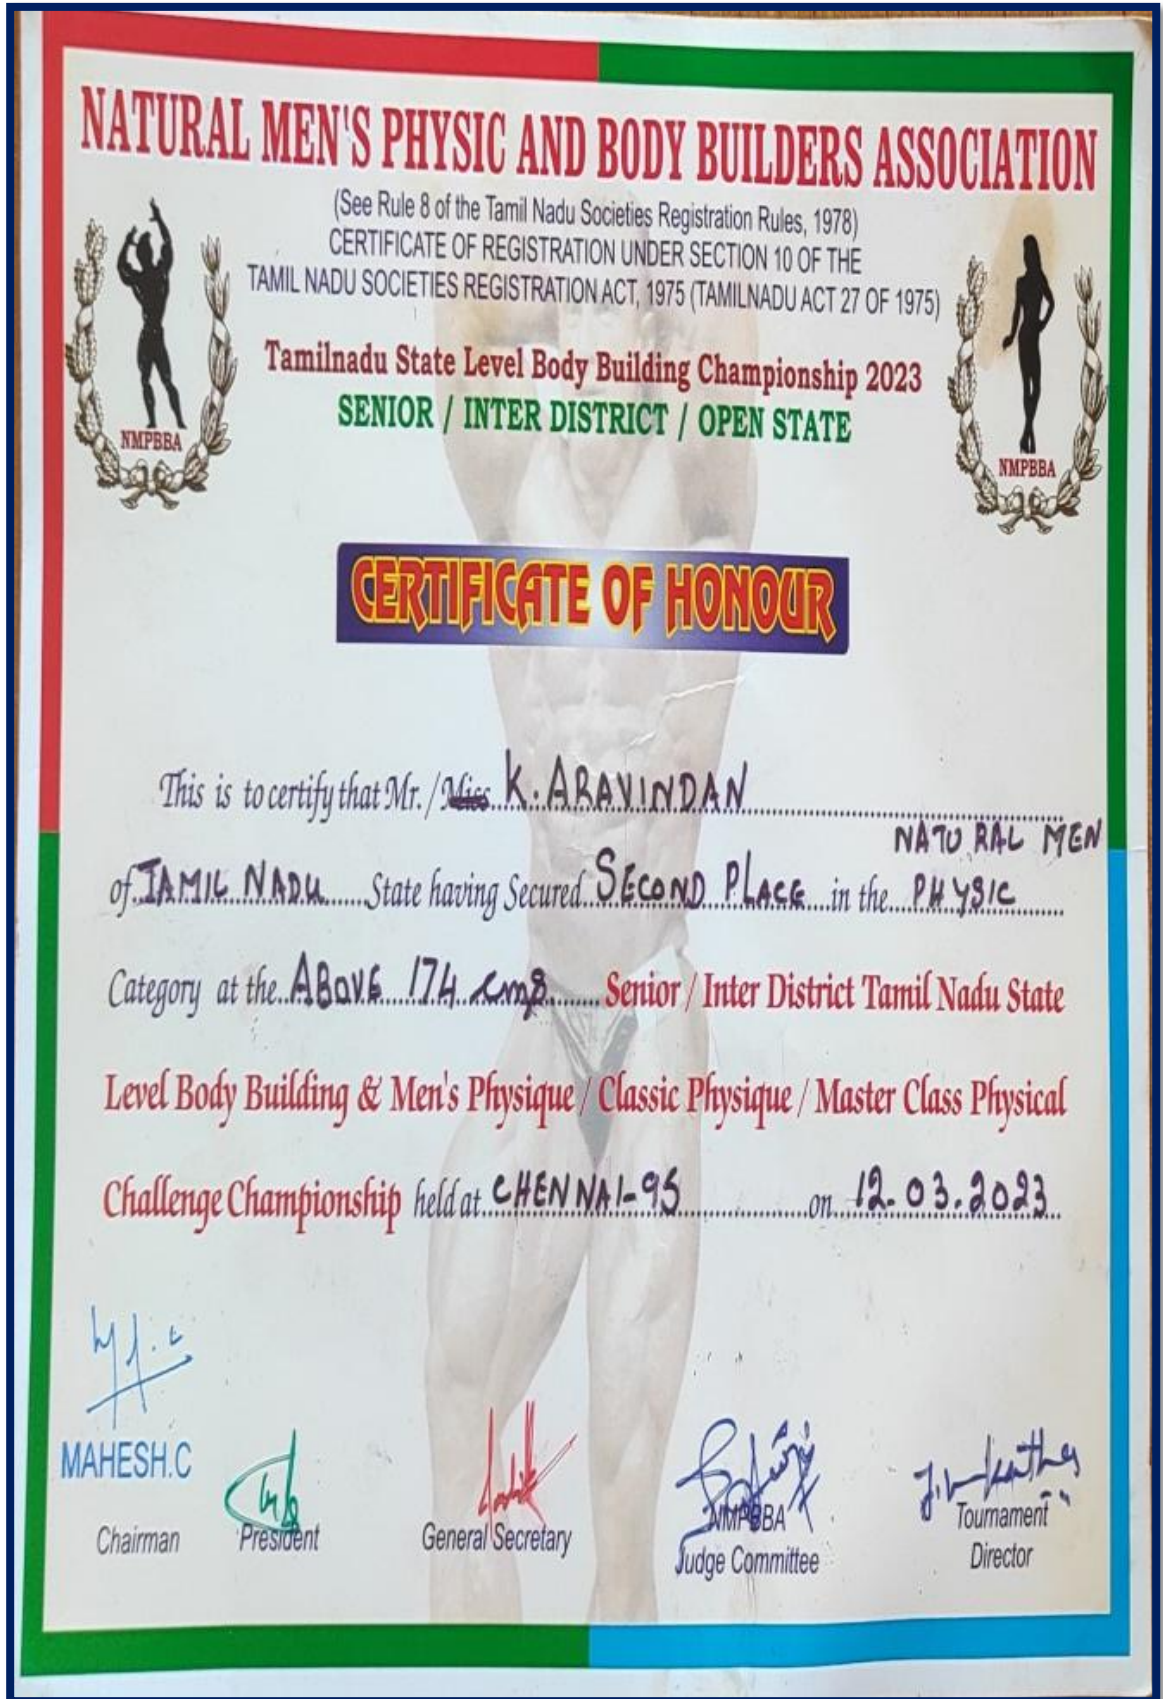 NATURAL MEN'S PHYSIC AND BODY BUILDERS ASSOCIATION
(See Rule 8 of the Tamil Nadu Societies Registration Rules, 1978)
CERTIFICATE OF REGISTRATION UNDER SECTION 10 OF THE
TAMIL NADU SOCIETIES REGISTRATION ACT, 1975 (TAMILNADU ACT 27 OF 1975)
Tamilnadu State Level Body Building Championship 2023
SENIOR / INTER DISTRICT / OPEN STATE
NMPBBA
NMPBBA
CERTIFICATE OF HONOUR
This is to certify that Mr. / Miss K. ARAVINDAN
NATURAL MEN
of TAMIL NADU State having Secured SECOND PLACE in the PHYSIC
Category at the ABOVE 174 cms Senior / Inter District Tamil Nadu State
Level Body Building & Men's Physique / Classic Physique / Master Class Physical
Challenge Championship held at CHENNAI-95 on 12.03.2023
MAHESH.C
Chairman
President
General Secretary
NMPBBA
Judge Committee
Tournament
Director